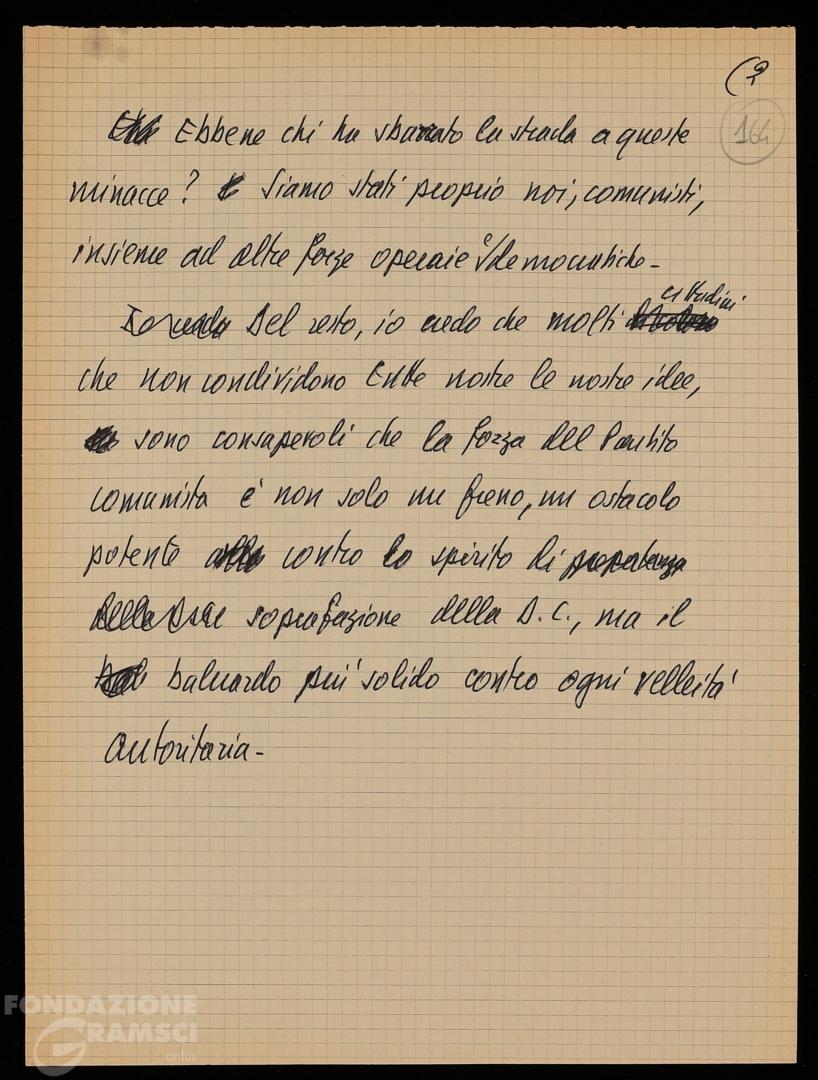 (9
164
Ebbene chi ha sbarrato la strada a queste
minacce? Siamo stati proprio noi, comunisti,
insieme ad altre forze operaie e democratiche -
Io credo Del resto, io credo che molti cittadini
che non condividono tutte nostre le nostre idee,
sono consapevoli che la forza del Partito
comunista è non solo un freno, un ostacolo
potente contro lo spirito di prepotenza
della D.C. soprafazione della D.C., ma il
baluardo piú solido contro ogni velleità
autoritaria -
FONDAZIONE
GRAMSCI
onlus